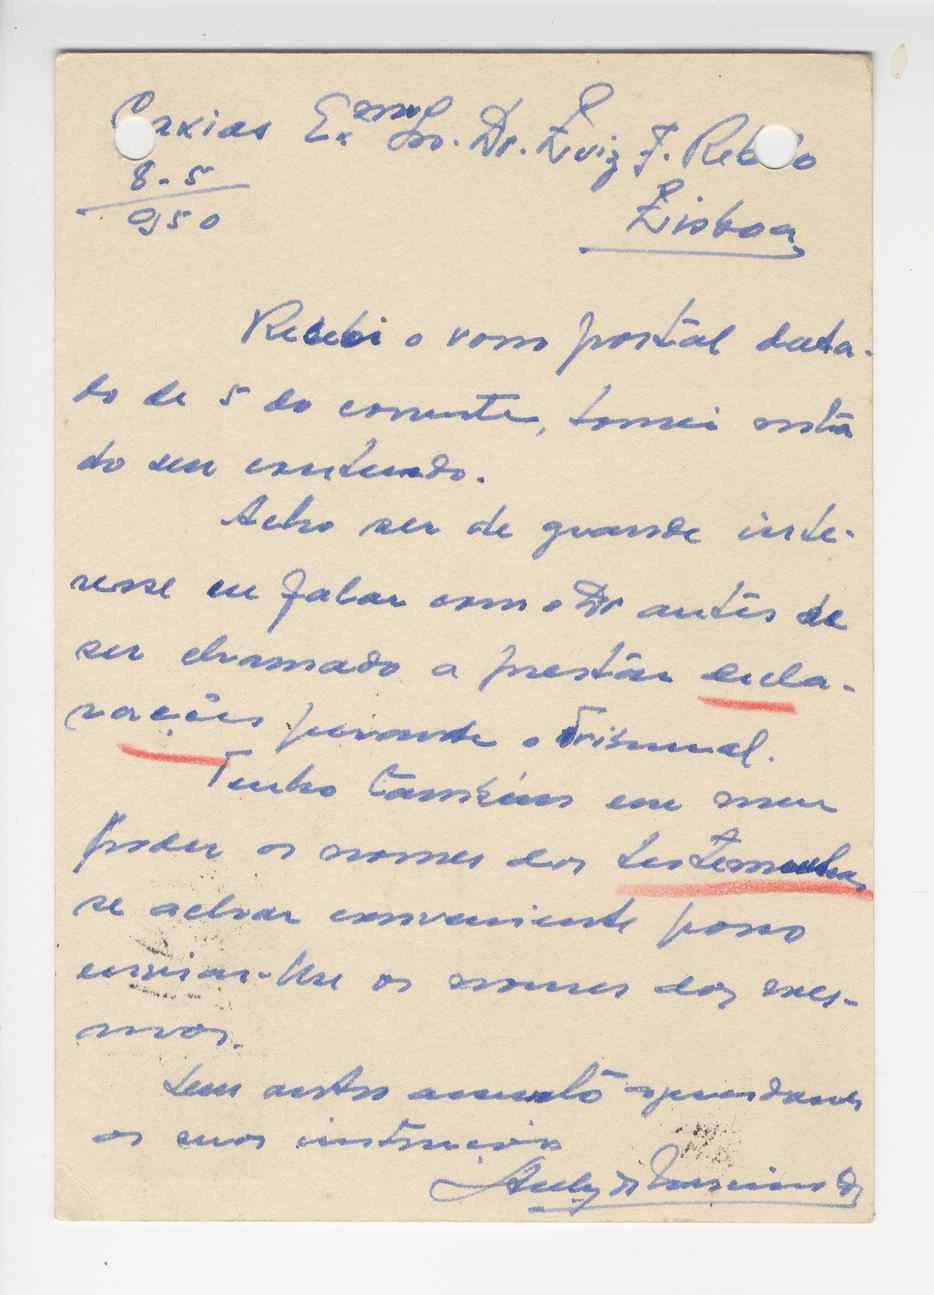 Caxias Exmo Sr. Dr. Luiz F. Rebelo
8-5
950
Lisboa
Recebi o vosso postal data-
do de 5 do corrente, tomei nota
do seu conteudo.
Acho ser de grande inte-
resse eu falar com o Dr antes de
ser chamado a prestar decla-
rações perante o Tribunal.
Tenho também em meu
poder os nomes das testemunhas
se achar conveniente posso
enviar-lhe os nomes dos mes-
mos.
Sem outro assunto aguardamos
as suas instruções